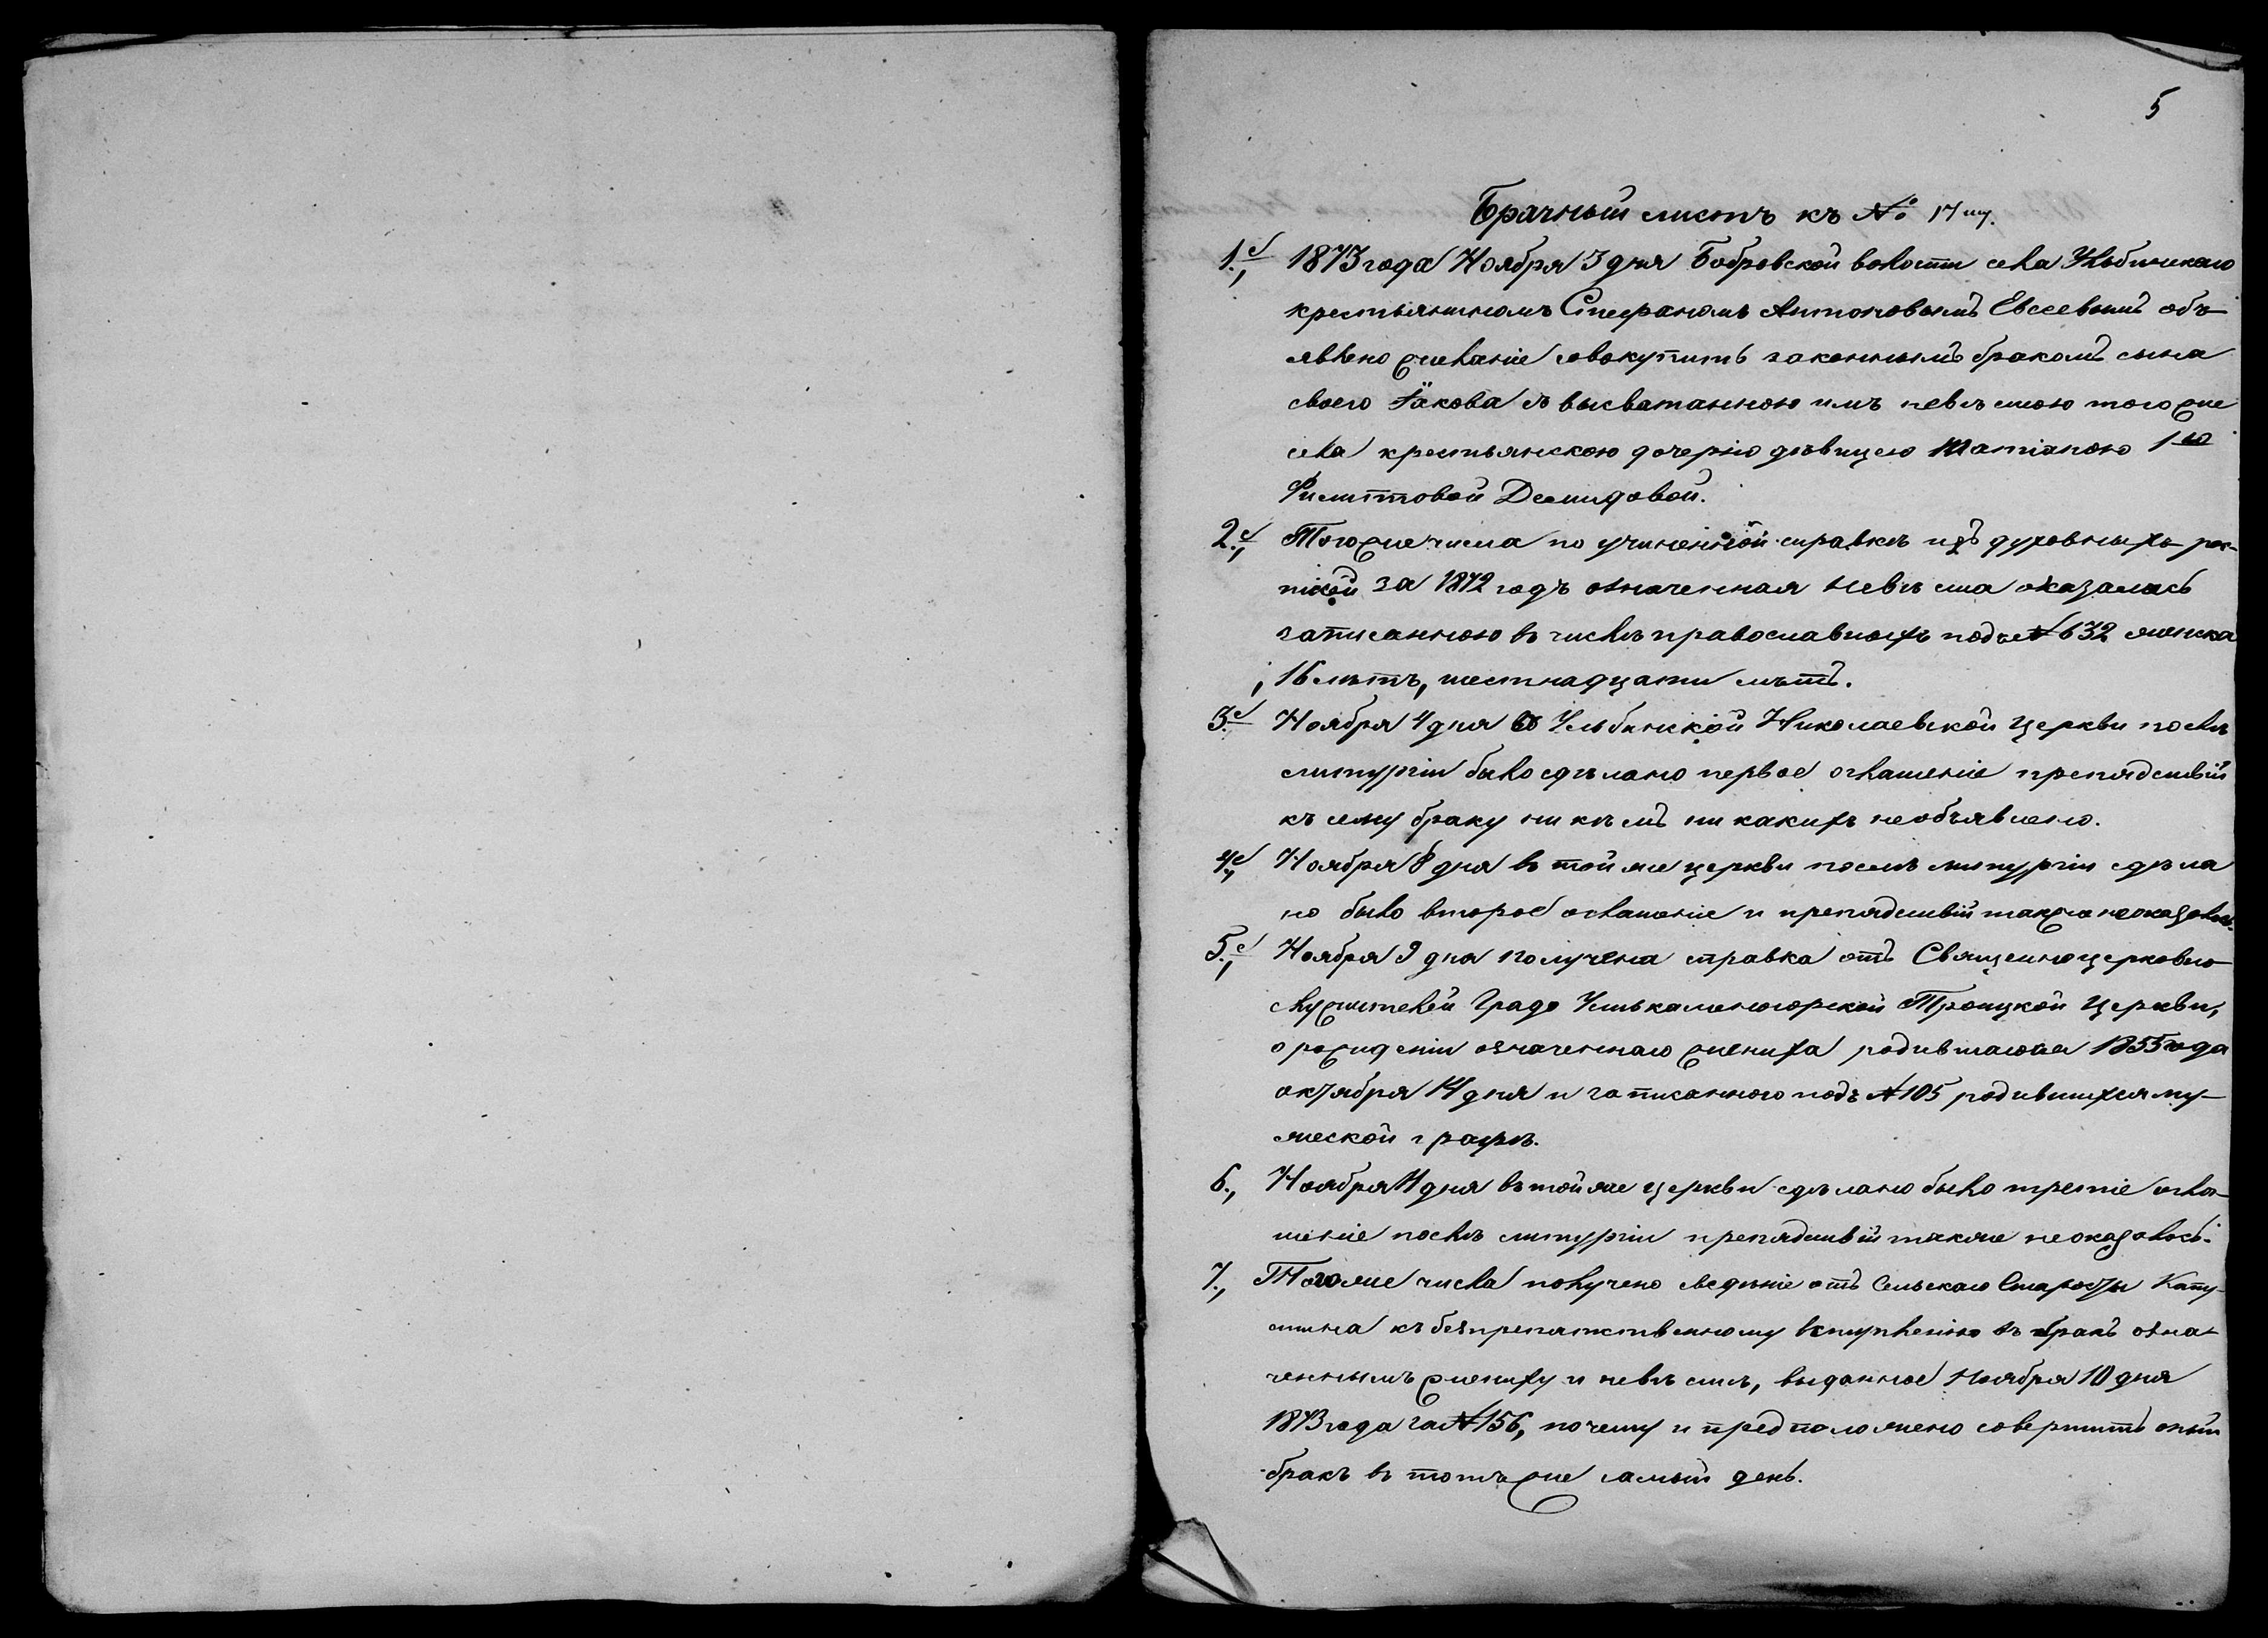 5
Брачный листъ къ № 17му.
1.е, 1873 года Ноября 3 дня Бобровской волости села Ульбинскаго
крестьяниномъ Стефаномъ Антоновымъ Евсеевымъ объ-
явлено желаніе совокупить законнымъ бракомъ сына
своего Іакова съ высватанною имъ невѣстою того же
села крестьянскою дочерію дѣвицею Татіаною 1ю
Филипповой Демидовой.
2.е, Того же числа по учиненной справкѣ изъ духовныхъ рос-
писей за 1872 годъ означенная невѣста оказалась
записанною въ числѣ православныхъ подъ № 632 женска
16 лѣтъ, шестнадцати лѣтъ.
3.е, Ноября 4 дня въ Ульбинской Николаевской церкви послѣ
литургіи было сдѣлано первое оглашеніе препядствій
къ сему браку ни кѣмъ ни какихъ необъявлено.
4.е, Ноября 8 дня въ той же церкви послѣ литургіи сдѣла
но было второе оглашеніе и препядствій также неоказалось.
5.е, Ноября 9 дня получена справка отъ Священноцерковно-
служителей Градо Устькаменогорской Троицкой церкви,
о рожденіи означеннаго жениха родившагося 1855 года
октября 14 дня и записанного подъ № 105 родившихся му-
жеской графѣ.
6., Ноября 11 дня въ той же церкви сдѣлано было третіе огла-
шеніе послѣ литургіи препядствій также неоказалось.
7., Того же числа получено сведѣніе отъ Сельскаго Старосты Капу-
стина къ безпрепятственному вступленію въ бракъ озна-
ченнымъ жениху и невѣстѣ, выданное Ноября 10 дня
1873 года за № 156, почему и предположено совершить оный
бракъ въ тотъ же самый день.